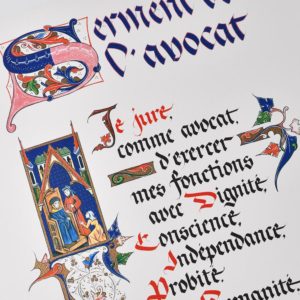 Serment de
l'avocat
Je jure,
comme avocat,
d'exercer
mes fonctions
avec Dignité,
Conscience,
Indépendance,
Probité
Humanité,